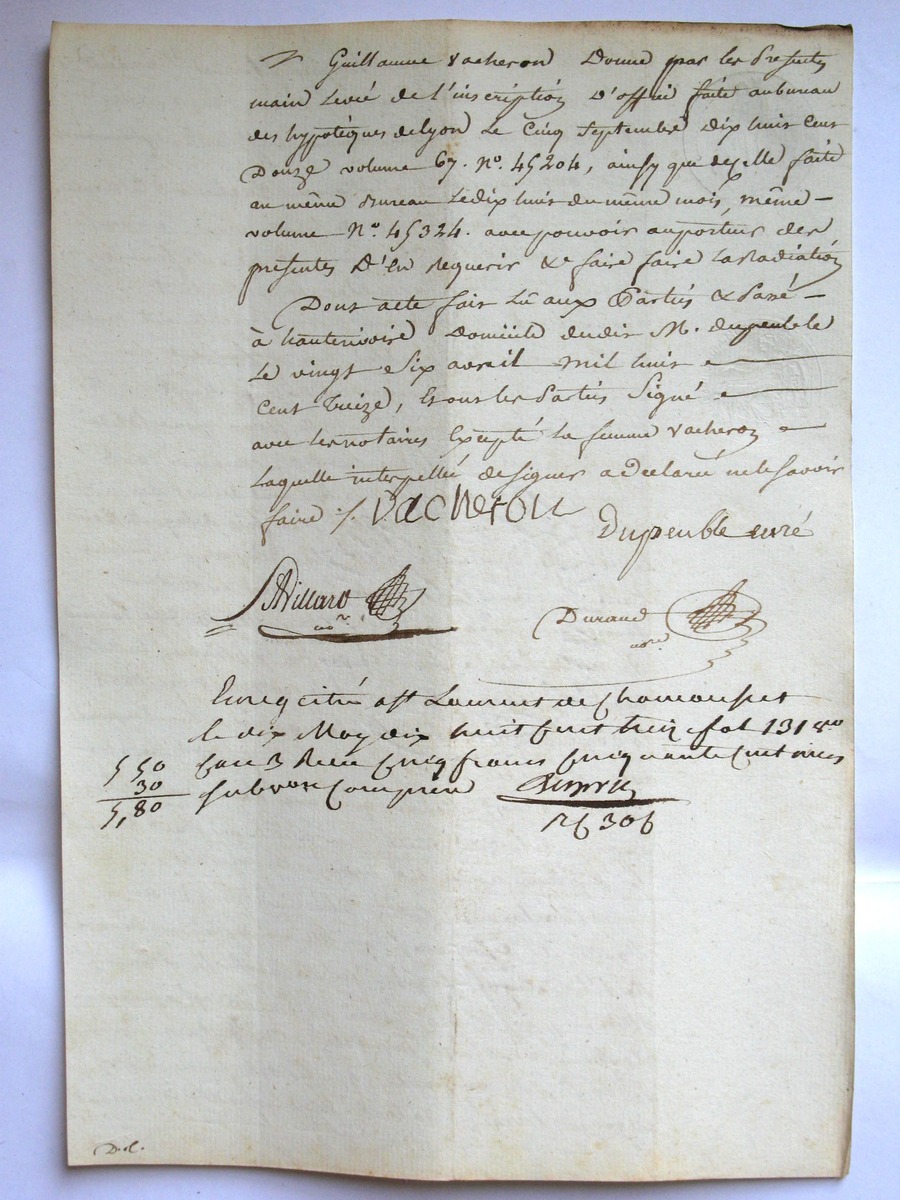 Guillaume Vacheron Donne par les presentes
main Levée de l'inscription D'office faite au bureau
des hypotéques de Lyon Le Cinq Septembre dix huit Cent
Douze volume 67. N°. 45204, ainsy que de celle faite
au même Bureau Le dix huit du même mois, même -
volume - N°. 45324. avec pouvoir au porteur des
presentes D'en Requerir & faire faire La Radiation
Dont acte fait Lû aux Parties & Passé -
à hauterivoire Domicile dudit M. dupeuble
Le vingt Six avril mil huit
Cent Treize, Et ont les Parties Signé
avec les notaires Excepté La femme Vacheron
Laquelle interpellée de Signer a Déclaré ne le Savoir
faire ./. Vacheron
Dupeuble curé
Villard
nore.
Durand
nore.
Enregistré a St Laurent de Chamousset
le dix May dix huit Cent treize fol 131
Case 3 Recu Cinq francs Cinquante Centimes
Subvon Comprise
5 50
30
5,80
D.c.